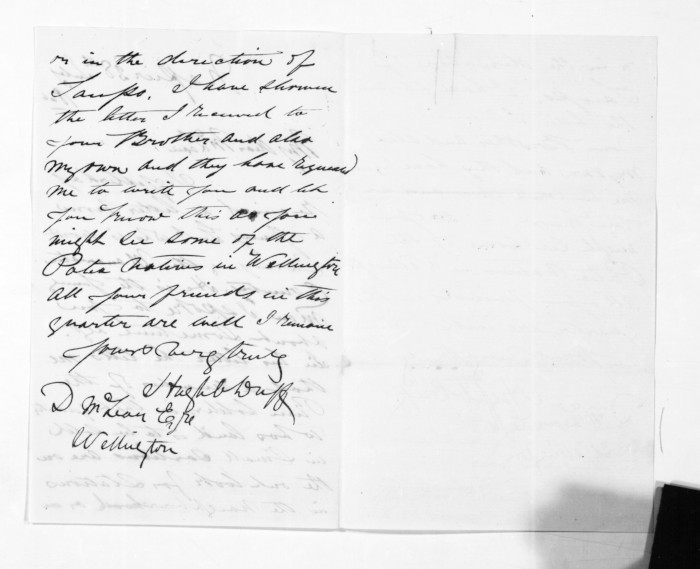 or in the direction of
Taupo. I have shown
the letter I received to
your Brother and also
my own and they have requested
me to write you and let
you know this as you
might see some of the
Patea natives in Wellington
all your friends in this
quarter are well I remain
yours very truly
Hugh Duff
D McLean Esqre
Wellington